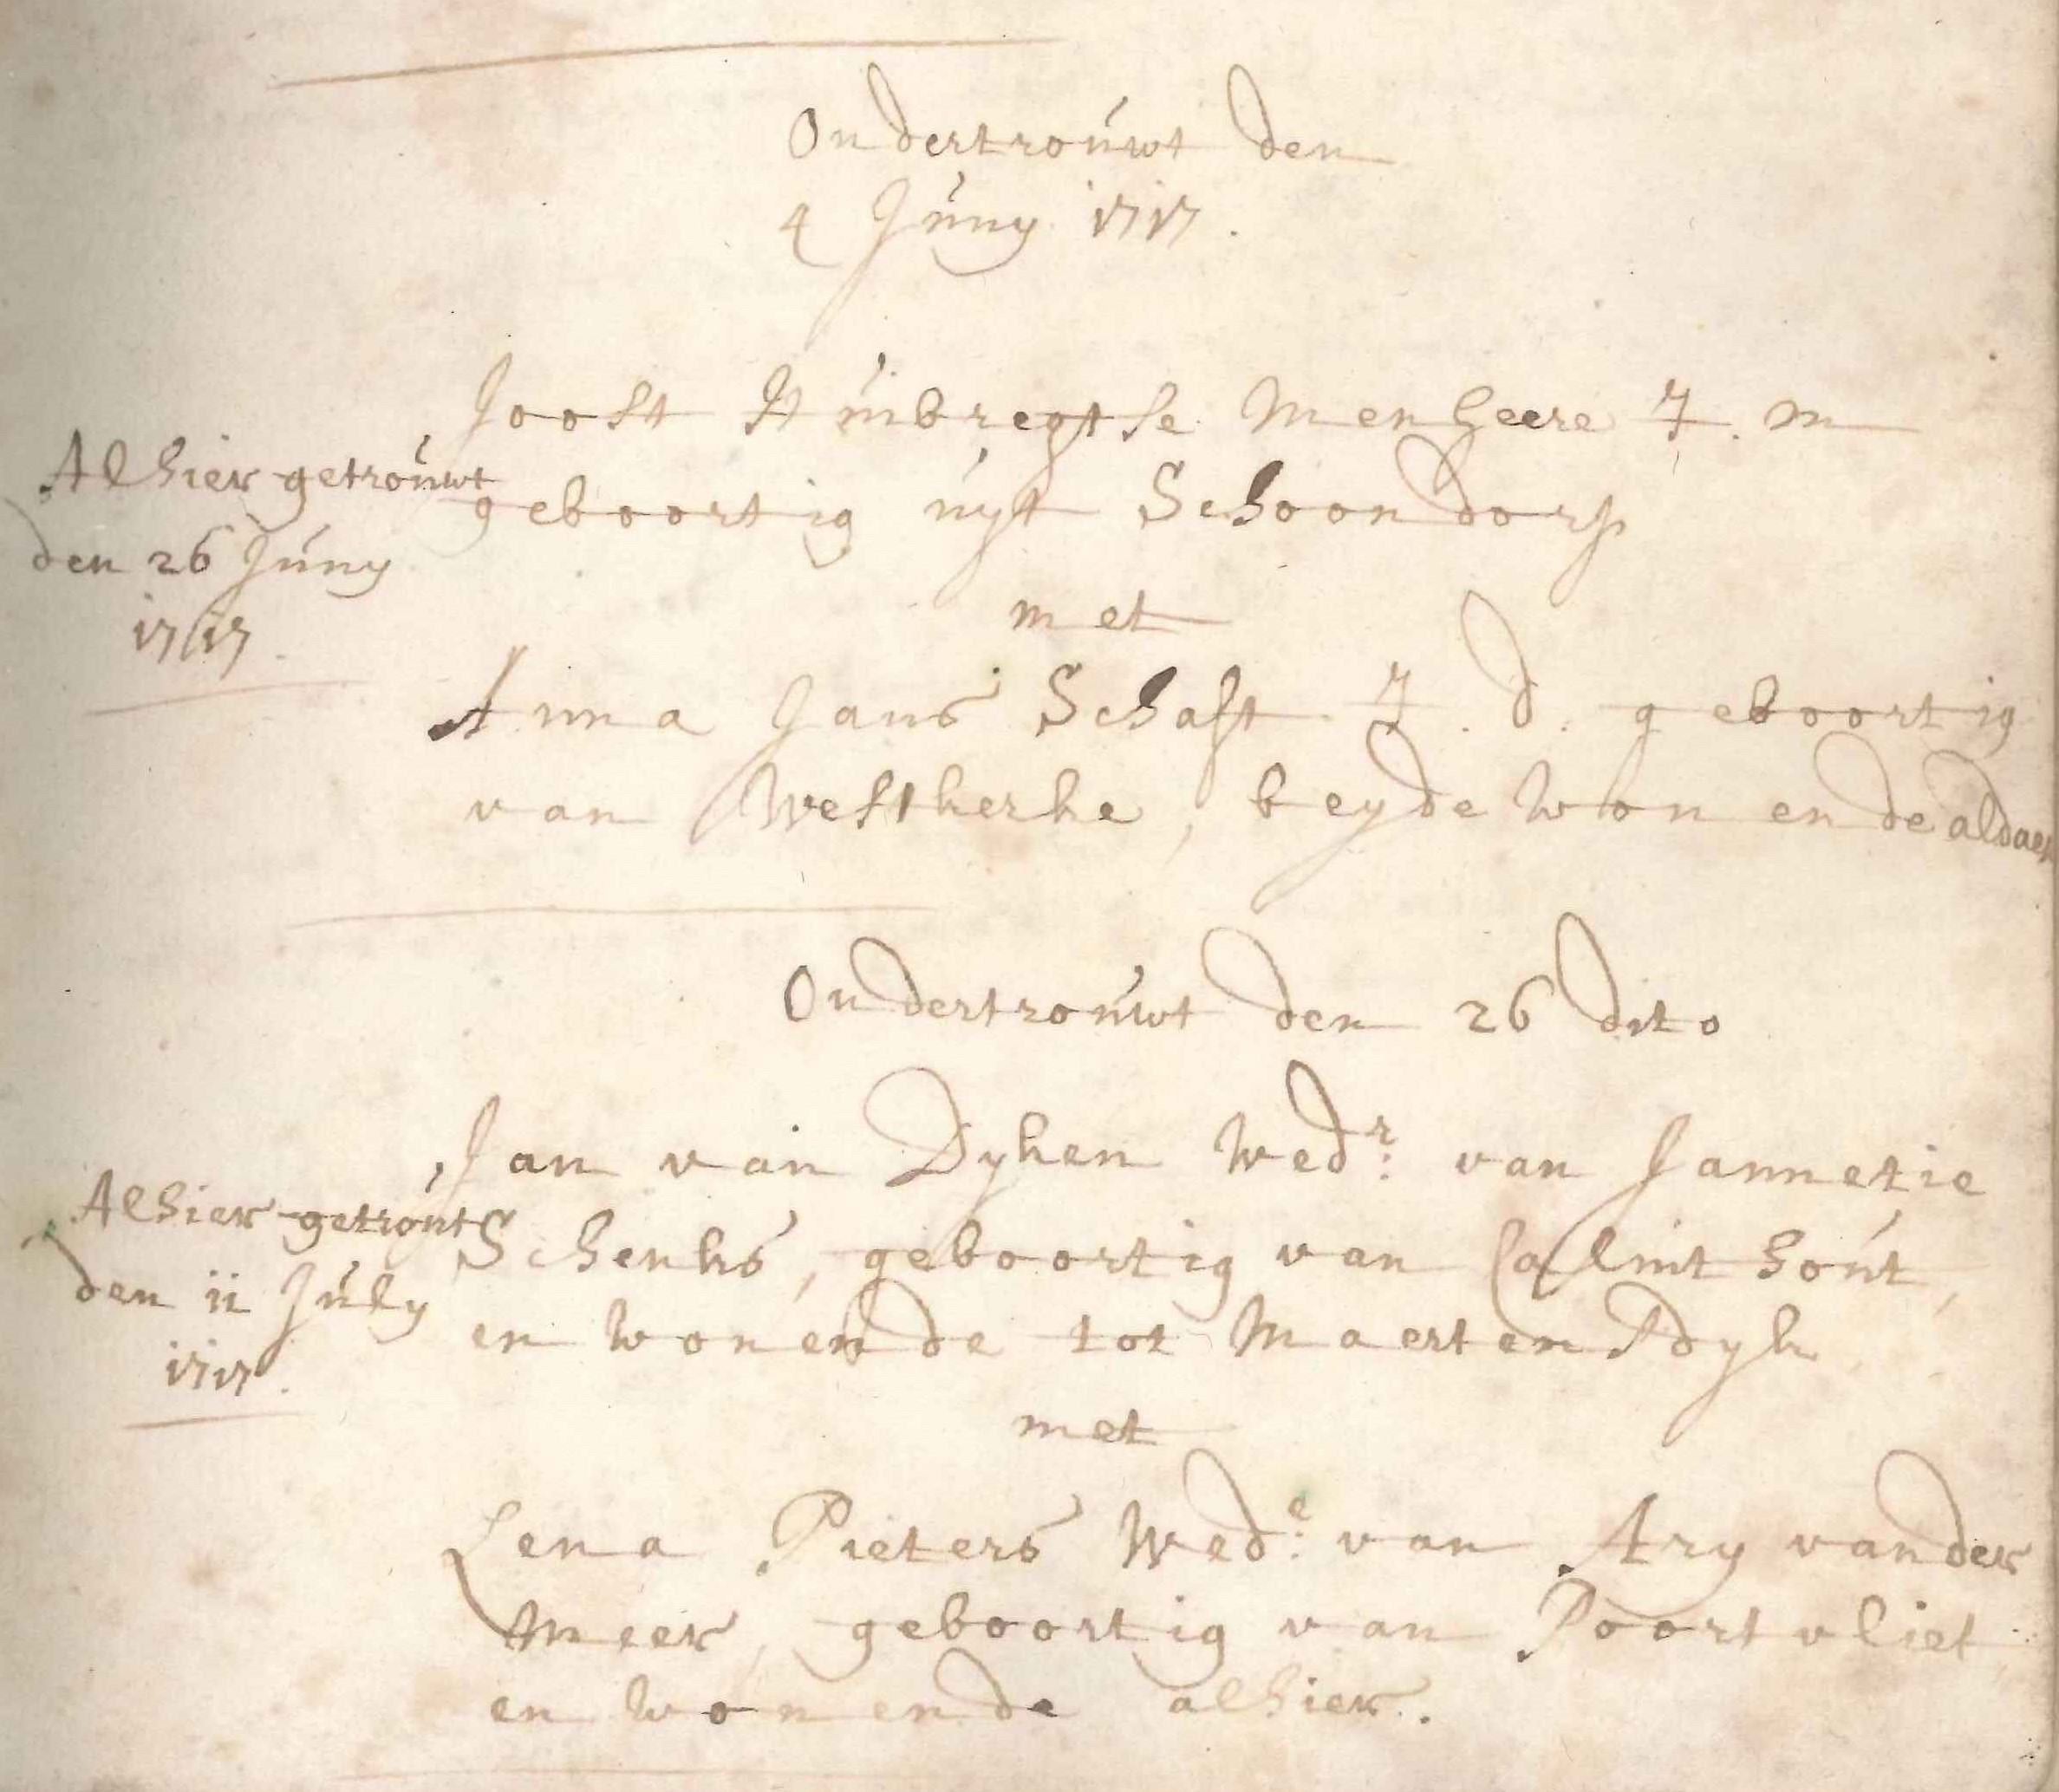 Ondertrouwt den
4 Juny 1717.
Joost Huibregtse Menheere J. m
geboortig uyt Schoondorp
met
Anna Jans Schaft J. d. geboortig
van Westkerke, beyde wonende aldaer
Alhier getrouwt
den 26 Juny
1717.
Ondertrouwt den 26 dito
Jan van Dyken Wedr: van Jannetie
Schenks, geboortig van Calmthout,
en wonende tot Maertensdyk
met
Lena Pieters Wede: van Ary vander
Meer, geboortig van Poortvliet
en wonende alhier.
Alhier getrout
den ii July
1717.